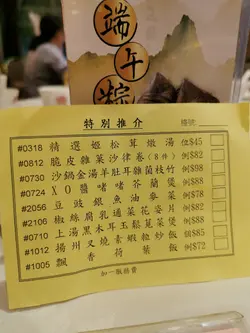 端午粽
特別推介
檯號:
#0318 精選姬松茸燉湯 位$45
#0812 脆皮雜菜沙律卷(8件) 例$82
#0730 沙鍋金湯羊肚耳雜菌枝竹 例$98
#0724 XO醬啫啫芥蘭煲 例$88
#2056 豆豉銀魚油麥菜 例$88
#2106 椒絲腐乳通菜花姿片 例$82
#0710 上湯黑木耳玉鬆莧菜煲 例$88
#1012 揚州叉燒素蝦粒炒飯 例$85
#1005 飄香荷葉飯 例$72
加一服務費